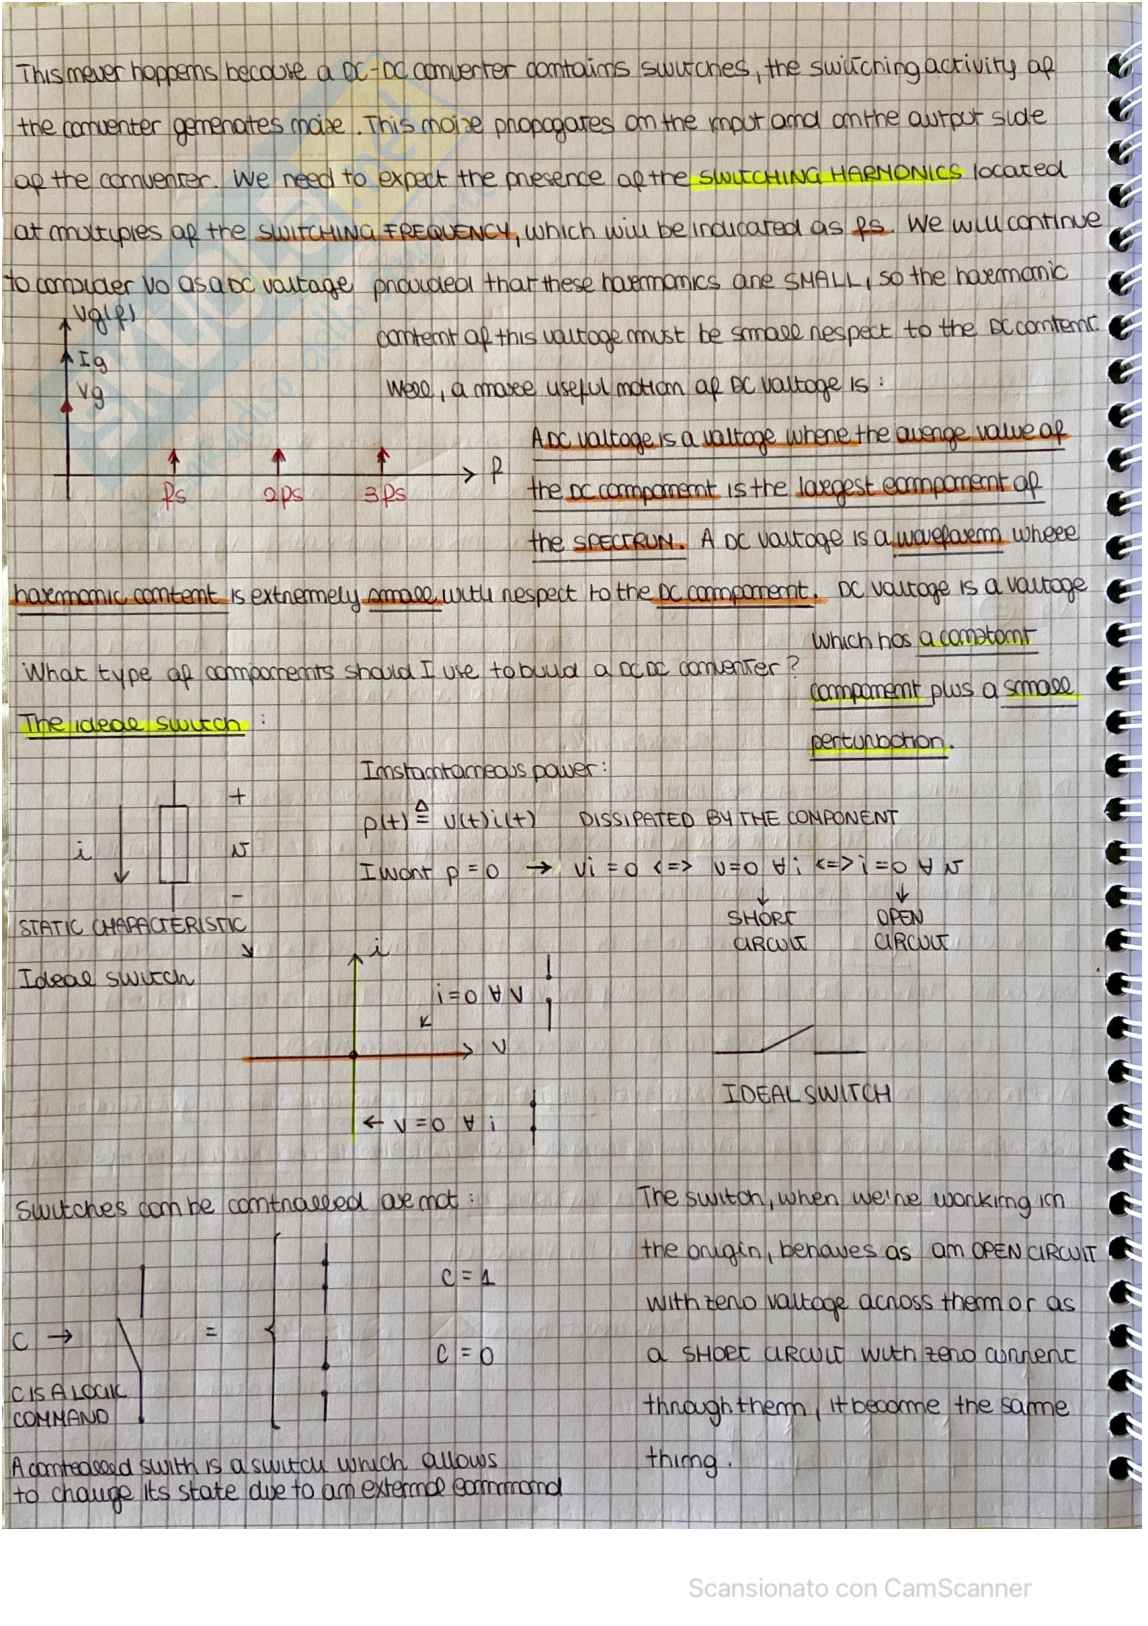 This never happens because a DC-DC converter contains switches, the switching activity of
the converter generates noise. This noise propagates on the input and on the output side
of the converter. We need to expect the presence of the SWITCHING HARMONICS located
at multiples of the SWITCHING FREQUENCY, which will be indicated as fs. We will continue
to consider Vo as a DC voltage provided that these harmonics are SMALL, so the harmonic
content of this voltage must be small respect to the DC content.
Well, a more useful notion of DC voltage is:
Vg(f)
Ig
Vg
fs 2fs 3fs f
A DC voltage is a voltage where the average value of
the DC component is the largest component of
the SPECTRUN. A DC voltage is a waveform where
harmonic content is extremely small with respect to the DC component. DC voltage is a voltage
which has a constant
component plus a small
perturbation.
What type of components should I use to build a DCDC converter?
The ideal switch:
Instantaneous power:
p(t) ≜ v(t)i(t) DISSIPATED BY THE COMPONENT
I want p = 0 → vi = 0 <=> v=0 ∀i <=> i=0 ∀ v
SHORT CIRCUIT
OPEN CIRCUIT
+
i
v
-
STATIC CHARACTERISTIC
Ideal switch
i
i=0 ∀ V
V
← v=0 ∀ i
IDEAL SWITCH
Switches can be controlled are not:
C →
=
C = 1
C = 0
C IS A LOGIC
COMMAND
A controlled swith is a switch which allows
to change its state due to an external command
The switch, when we're working in
the origin, behaves as an OPEN CIRCUIT
with zero voltage across them or as
a SHORT CIRCUIT with zero current
through them, it become the same
thing.
Scansionato con CamScanner